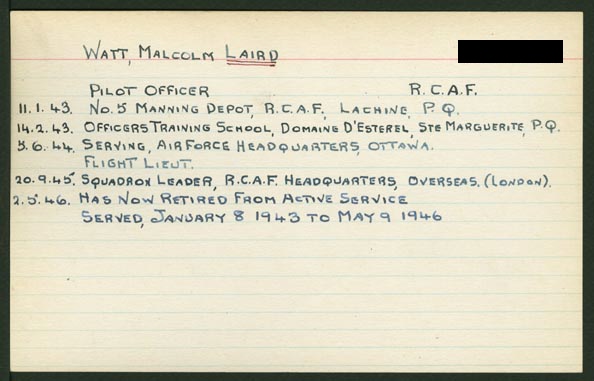 WATT, MALCOLM LAIRD
PILOT OFFICER R.C.A.F.
11.1.43. NO. 5 MANNING DEPOT, R.C.A.F., LACHINE, P.Q.
14.2.43. OFFICERS TRAINING SCHOOL, DOMAINE D'ESTEREL, STE MARGUERITE, P.Q.
5.6.44. SERVING, AIR FORCE HEADQUARTERS, OTTAWA.
FLIGHT LIEUT.
20.9.45. SQUADRON LEADER, R.C.A.F. HEADQUARTERS, OVERSEAS. (LONDON).
2.5.46. HAS NOW RETIRED FROM ACTIVE SERVICE
SERVED, JANUARY 8 1943 TO MAY 9 1946